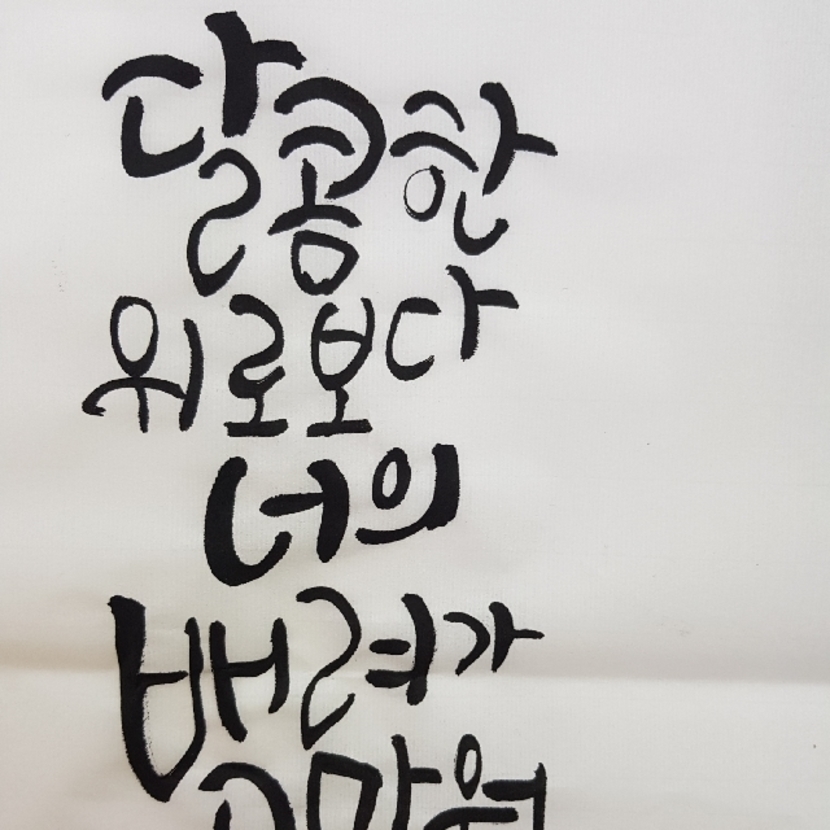 달콤한
위로보다
너의
배려가
고마워